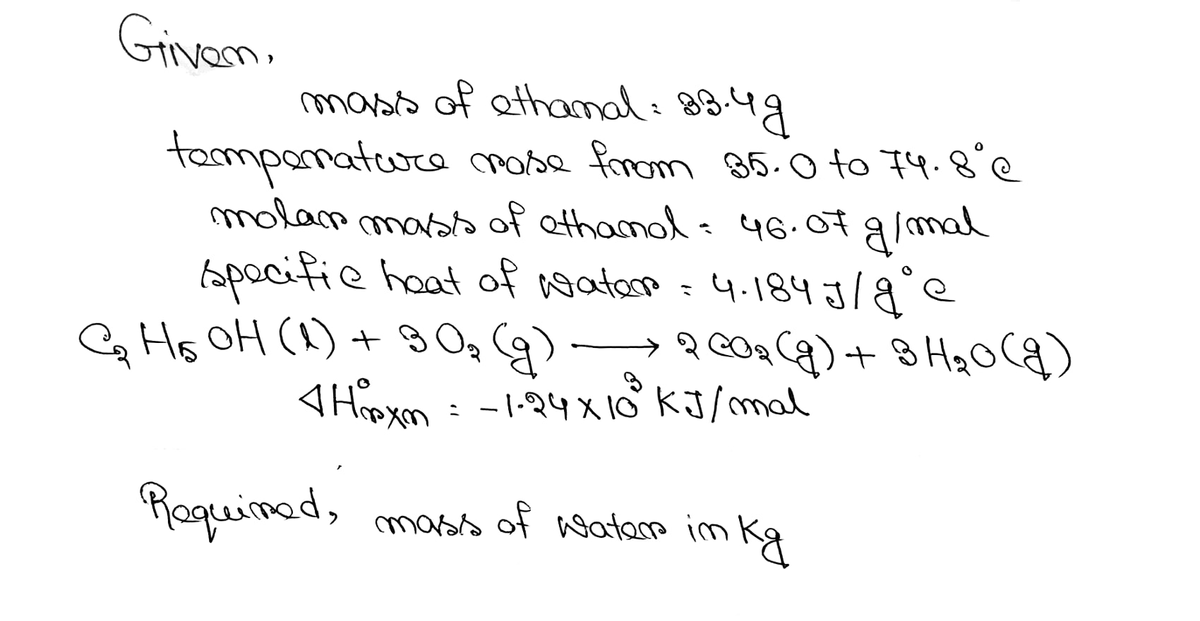 Given,
mass of ethanol = 33.4g
temperature rose from 35.0 to 74.8°C
molar mass of ethanol = 46.07 g/mol
specific heat of water = 4.184 J/g°C
C₂H₅OH(l) + 3O₂(g) ⟶ 2CO₂(g) + 3H₂O(g)
ΔH°rxn = -1.24 x 10³ KJ/mol
Required, mass of water in Kg